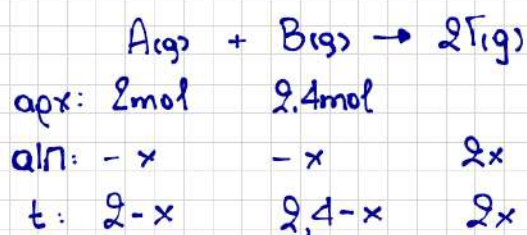 A(g) + B(g) → 2Γ(g)
αρχ: 2mol 2.4mol
α|π: -x -x 2x
t: 2-x 2,4-x 2x